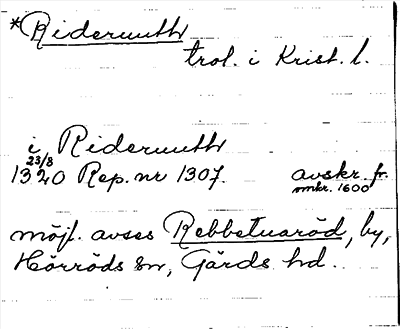 *Ridermuth
trol. i Krist. l.
i Ridermuth
23/8
1320 Rep. nr 1307. avskr. fr.
omkr. 1600
möjl. avses Rebbetuaröd, by,
Hörröds sn, Gärds hd.